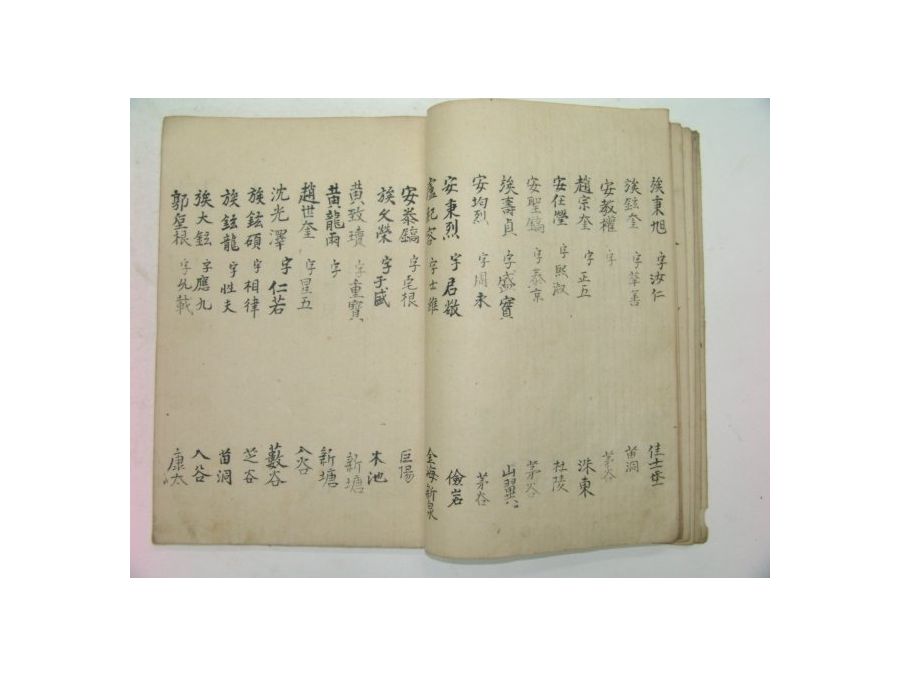 族東旭 字汝仁 佳士谷
族鉉奎 字華善 苗洞
安敎權 字 茅谷
趙宗奎 字正五 洙東
安任瑩 字熙淑 杜陵
安聖鎬 字泰京 茅谷
族壽貞 字盛寶 山翼
安均烈 字周未 茅谷
安東烈 字君敬 儉岩
盧紀容 字士維 金海新泉
安泰鎬 字宅根 巨陽
族文榮 字于盛 木池
黃致瓊 字重寶 新塘
黃龍雨 字 新塘
趙世奎 字星五 入谷
沈光澤 字仁若 藪谷
族鉉碩 字相律 芝谷
族鉉龍 字性夫 苗洞
族大鉉 字應九 入谷
郭聖根 字允載 康太